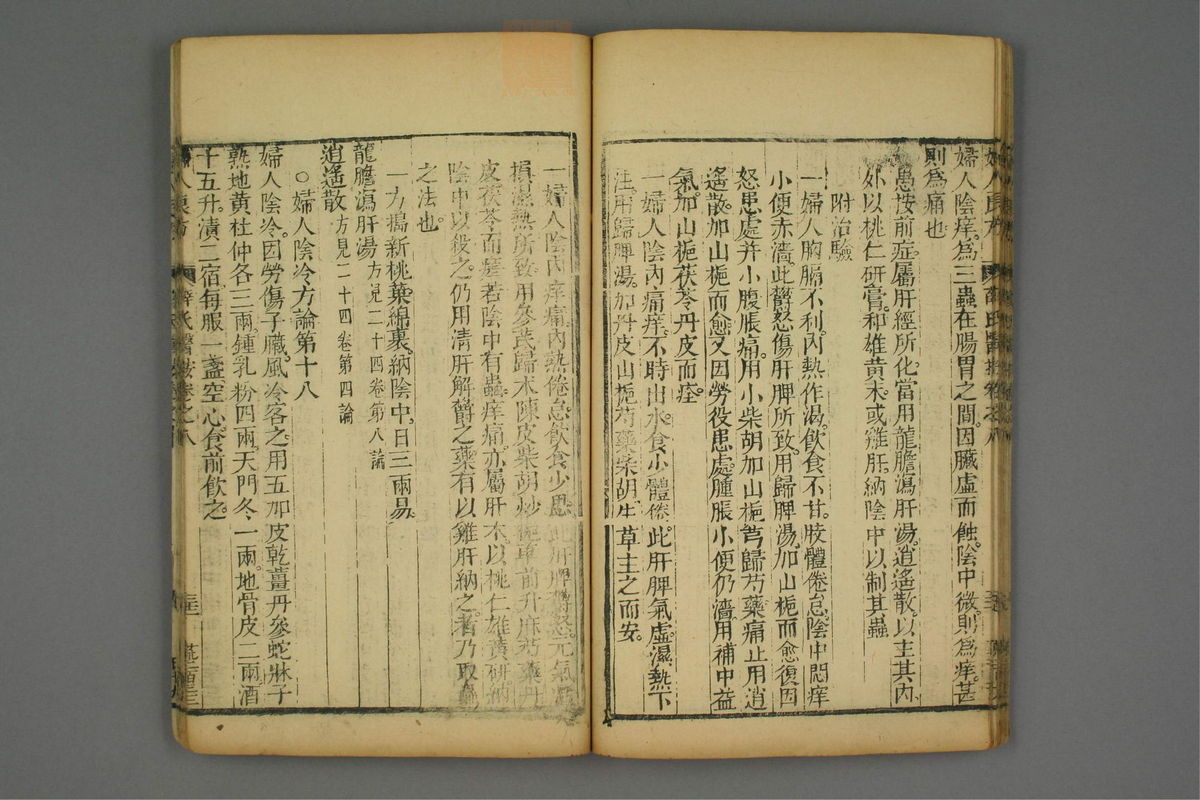 婦人陰痒爲三蟲在腸胃之間。因臟虛而蝕。陰中微則爲痒。甚
則爲痛也
愚按前症屬肝經所化當用龍膽瀉肝湯。逍遙散。以主其內
外以桃仁研膏。和雄黃末。或雞肝。納陰中以制其蟲
附治驗
一婦人胸膈不利。內熱作渴。飲食不甘。肢體倦怠。陰中悶痒
小便赤濇此鬱怒傷肝脾所致。用歸脾湯。加山梔而愈復因
怒患處并小腹脹痛。用小柴胡加山梔芎歸芍藥痛止用逍
遙散。加山梔而愈又因勞役患處腫脹小便仍濇用補中益
氣。加山梔茯苓丹皮而痊
一婦人陰內痛痒不時出水。食少體倦。此肝脾氣虛濕熱下
注。用歸脾湯。加丹皮山梔芍藥柴胡生草主之而安。
一婦人陰內痒痛內熱倦怠飲食少思此肝脾鬱怒。元氣
損濕熱所致。用參芪歸朮陳皮柴胡炒梔車前升麻芍藥丹
皮茯苓而痊若陰中有蟲。痒痛。亦屬肝木。以桃仁雄黃研納
陰中以殺之。仍用清肝解鬱之藥有以雞肝納之者乃取
之法也
一方搗新桃葉綿裹。納陰中。日三兩易
龍膽瀉肝湯方見二十四卷第八論
逍遙散方見二十四卷第四論
○婦人陰冷方論第十八
婦人陰冷。因勞傷子臟。風冷客之。用五加皮乾薑丹參蛇牀子
熟地黃杜仲各三兩。鍾乳粉四兩。天門冬一兩。地骨皮二兩酒
十五升漬二宿每服一盞空心食前飲之